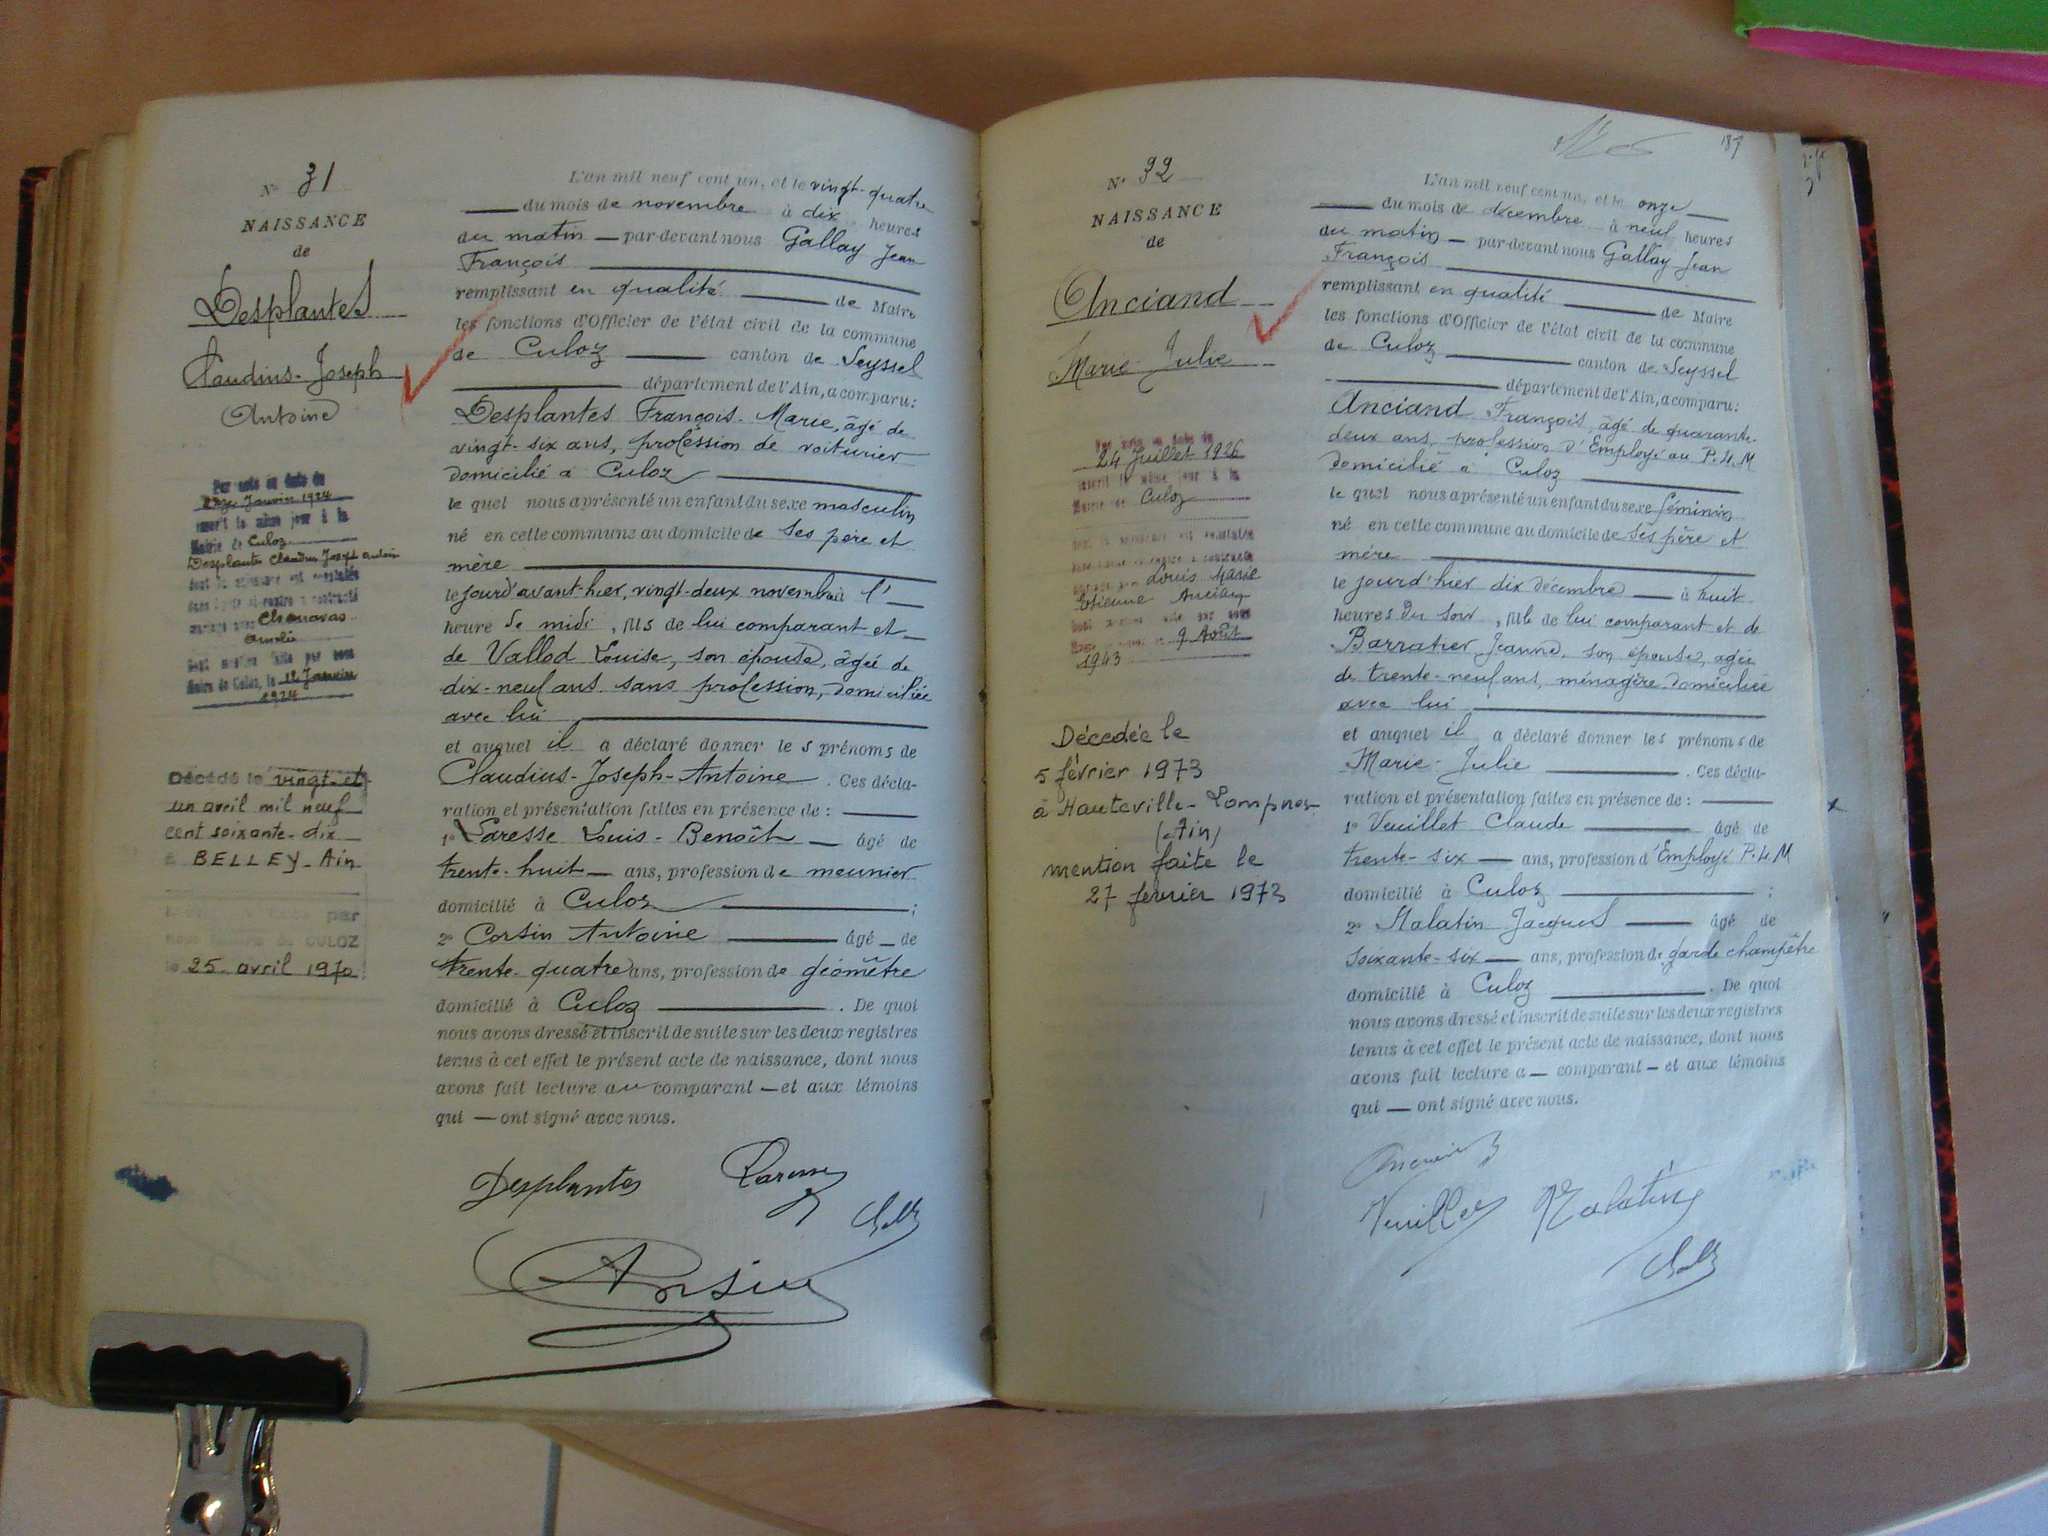 N° 31
NAISSANCE
de
Desplantes
Claudius-Joseph
Antoine
Par acte en date du
Janvier 1924
inscrit le même jour à la
Mairie de Culoz
Desplantes Claudius Joseph Antoine
dont la naissance est constatée
dans l'acte ci-contre a contracté
mariage avec Chouavas
Amélie
Dont mention faite par nous
Maire de Culoz, le 12 Janvier
1924
Décédé le vingt-et-
un avril mil neuf
cent soixante-dix
à BELLEY-Ain
par
CULOZ
le 25 avril 1970
L'an mil neuf cent un, et le vingt-quatre
du mois de novembre à dix heures
du matin par-devant nous Gallay Jean
François
remplissant en qualité de Maire
les fonctions d'Officier de l'état civil de la commune
de Culoz canton de Seyssel
département de l'Ain, a comparu:
Desplantes François-Marie, âgé de
vingt-six ans, profession de voiturier
domicilié à Culoz
lequel nous a présenté un enfant du sexe masculin
né en cette commune au domicile de ses père et
mère
le jourd'avant-hier, vingt-deux novembre à l'
heure de midi, fils de lui comparant et
de Vallod Louise, son épouse, âgée de
dix-neuf ans sans profession, domiciliée
avec lui
et auquel il a déclaré donner les prénoms de
Claudius-Joseph-Antoine. Ces décla-
ration et présentation faites en présence de:
1° Laresse Louis-Benoît âgé de
trente-huit ans, profession de meunier
domicilié à Culoz;
2° Corsin Antoine âgé de
trente-quatre ans, profession de géomètre
domicilié à Culoz. De quoi
nous avons dressé et inscrit de suite sur les deux registres
tenus à cet effet le présent acte de naissance, dont nous
avons fait lecture au comparant et aux témoins
qui ont signé avec nous.
Desplantes
187
N° 32
NAISSANCE
de
Anciand
Marie-Julie
Par acte en date du
24 Juillet 1926
inscrit le même jour à la
Mairie de Culoz
dont la naissance est constatée
dans l'acte ci-contre a contracté
mariage avec Louis Marie
Etienne
9 Août
1943
Décédée le
5 février 1973
à Hauteville-Lompnes
(Ain)
mention faite le
27 février 1973
L'an mil neuf cent un, et le onze
du mois de décembre à neuf heures
du matin par-devant nous Gallay Jean
François
remplissant en qualité de Maire
les fonctions d'Officier de l'état civil de la commune
de Culoz canton de Seyssel
département de l'Ain, a comparu:
Anciand François, âgé de quarante-
deux ans, profession d'Employé au P.L.M
domicilié à Culoz
lequel nous a présenté un enfant du sexe féminin
né en cette commune au domicile de ses père et
mère
le jourd'hier dix décembre à huit
heures du soir, fille de lui comparant et de
Barratier Jeanne, son épouse, âgée
de trente-neuf ans, ménagère domiciliée
avec lui
et auquel il a déclaré donner les prénoms de
Marie-Julie. Ces décla-
ration et présentation faites en présence de:
1° Veuillet Claude âgé de
trente-six ans, profession d'Employé P.L.M
domicilié à Culoz;
2° Malatin Jacques âgé de
soixante-six ans, profession de garde champêtre
domicilié à Culoz. De quoi
nous avons dressé et inscrit de suite sur les deux registres
tenus à cet effet le présent acte de naissance, dont nous
avons fait lecture a comparant et aux témoins
qui ont signé avec nous.
Veuillet Malatin